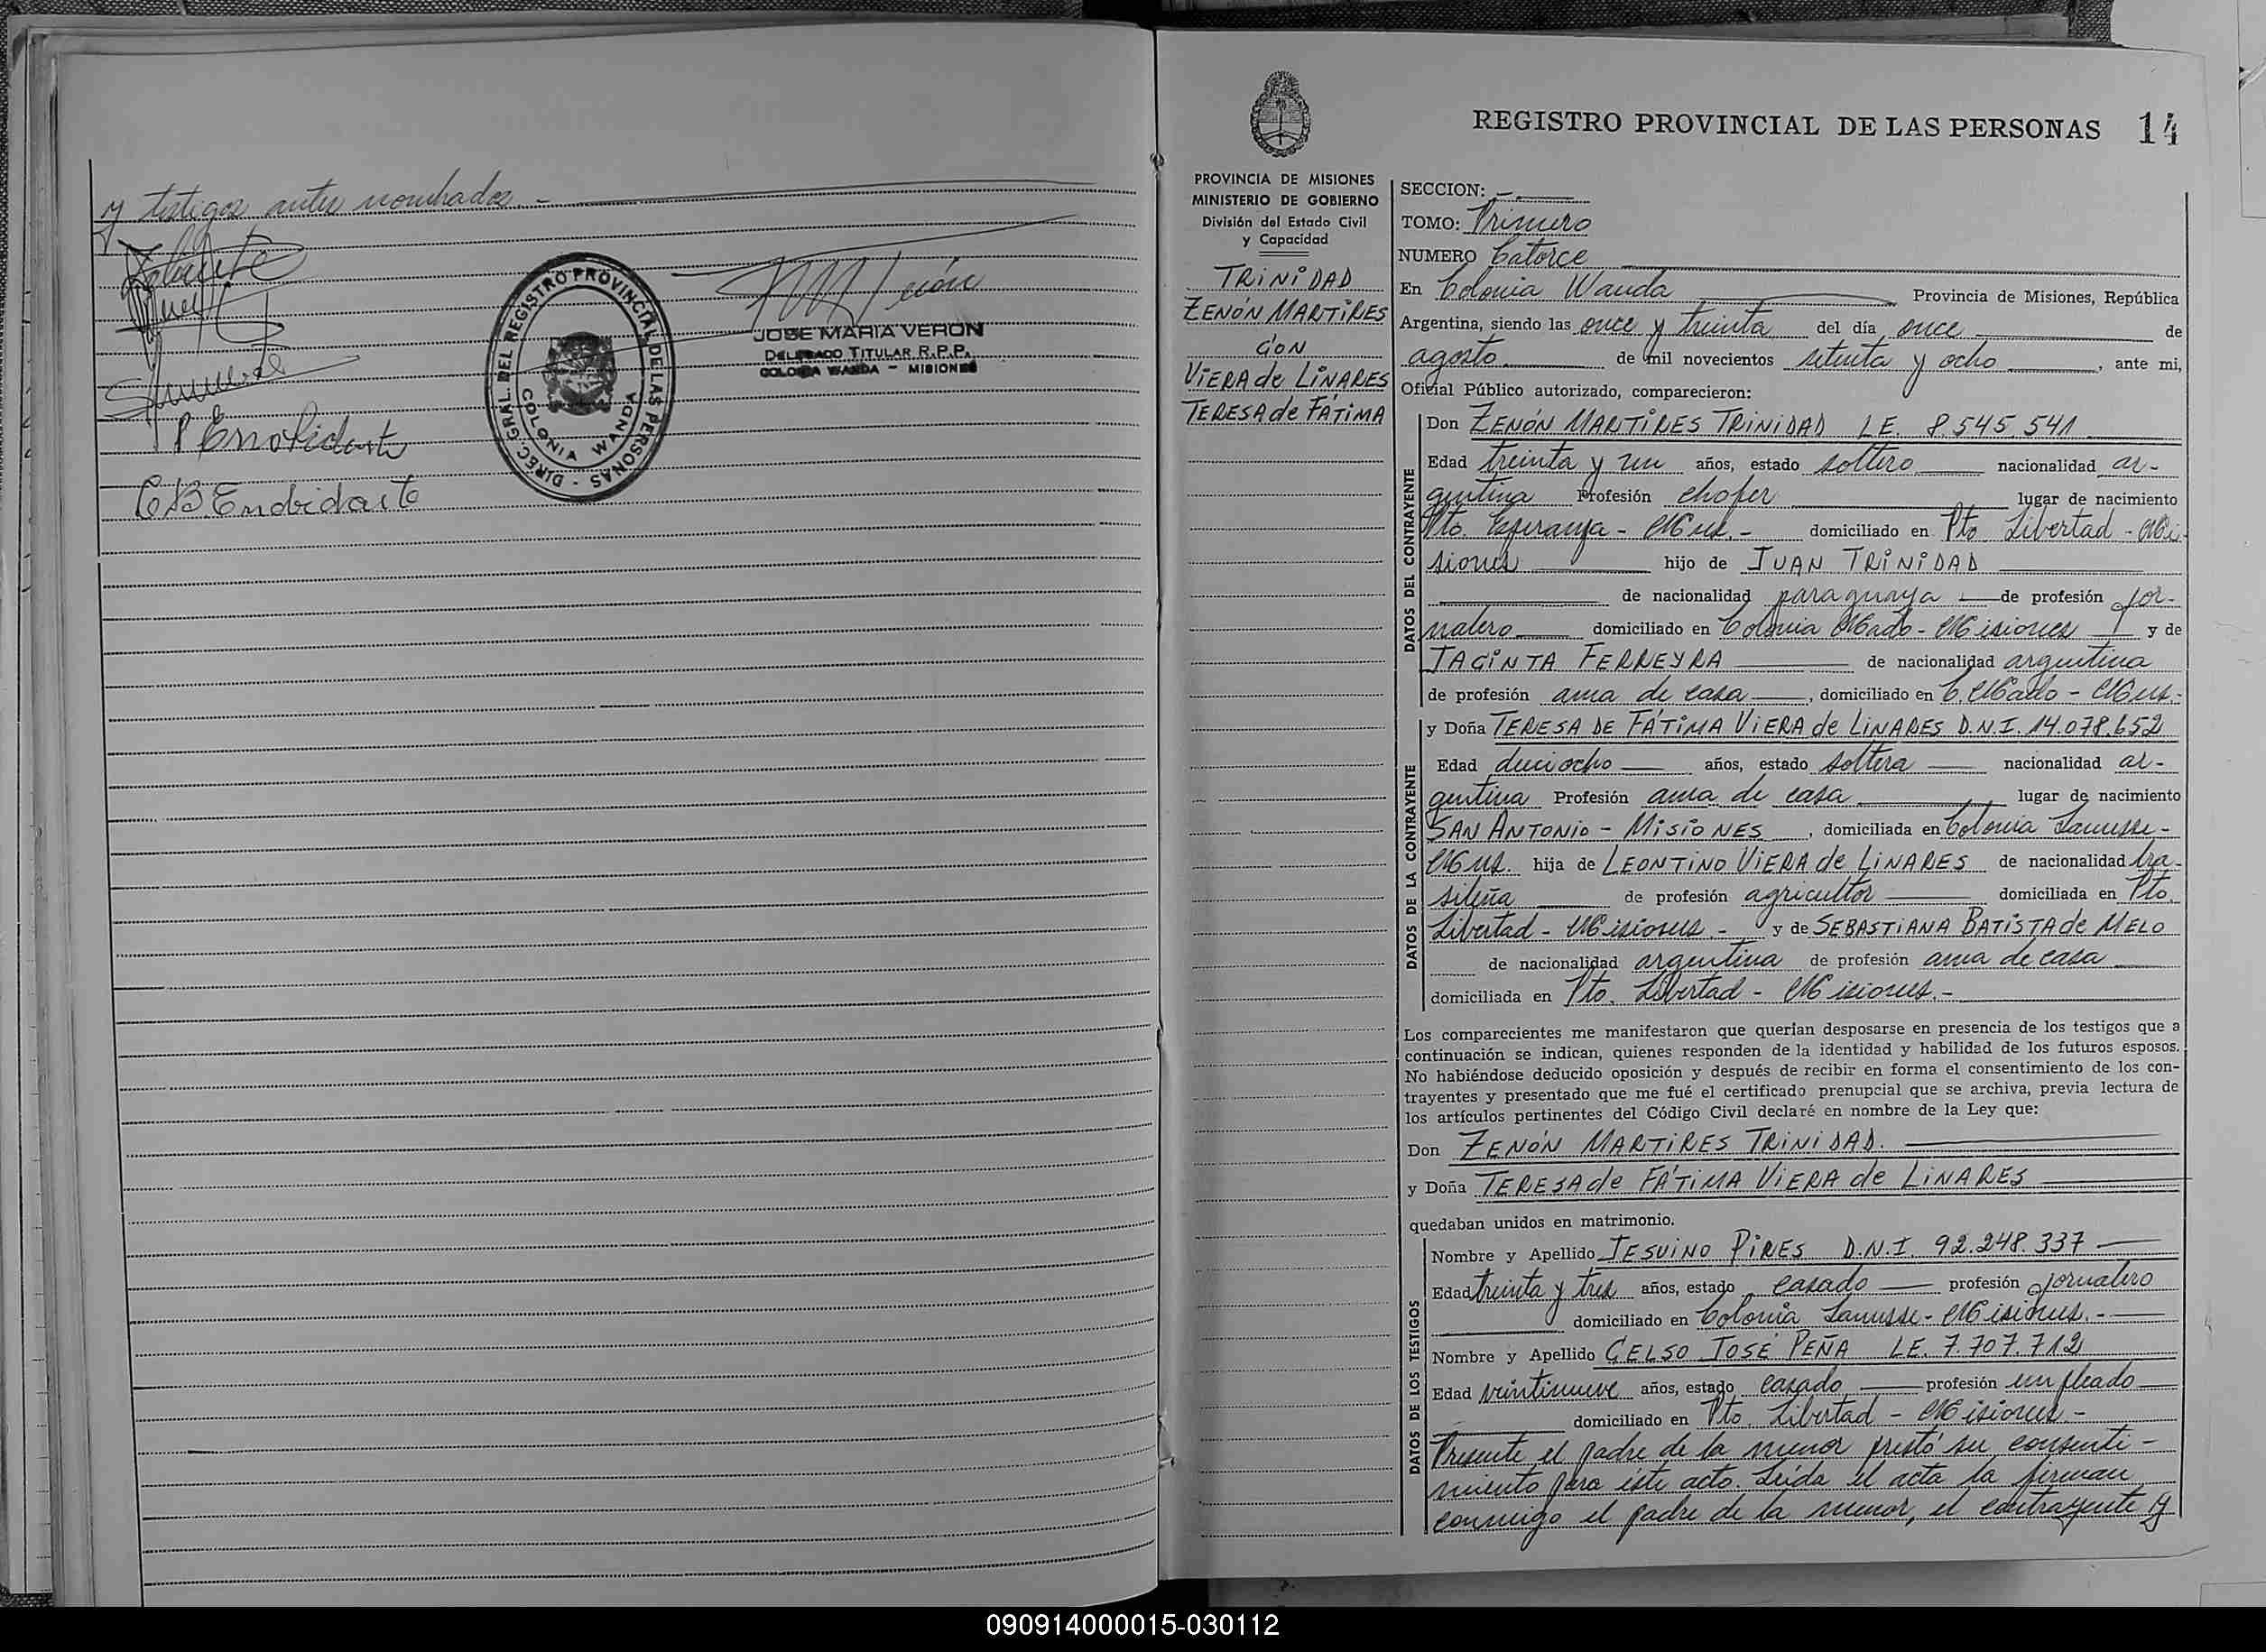 y testigos antes nombrados.-
DIREC. GRAL. DEL REGISTRO PROVINCIAL DE LAS PERSONAS -
COLONIA WANDA
JOSE MARIA VERON
DELEGADO TITULAR R.P.P.
COLONIA WANDA - MISIONES
REGISTRO PROVINCIAL DE LAS PERSONAS 14
PROVINCIA DE MISIONES
MINISTERIO DE GOBIERNO
División del Estado Civil
y Capacidad
TRINIDAD
ZENÓN MARTIRES
CON
VIERA de LINARES
TERESA de FÁTIMA
SECCION: -
TOMO: Primero
NUMERO Catorce
En Colonia Wanda Provincia de Misiones, República
Argentina, siendo las once y treinta del día once de
agosto de mil novecientos setenta y ocho, ante mi,
Oficial Público autorizado, comparecieron:
DATOS DEL CONTRAYENTE
Don ZENÓN MARTIRES TRINIDAD LE. 8.545.541
Edad treinta y un años, estado soltero nacionalidad ar-
gentina Profesión chofer lugar de nacimiento
Pto. Esperanza - Mnes.- domiciliado en Pto. Libertad - Mi-
siones hijo de JUAN TRINIDAD
de nacionalidad paraguaya de profesión jor-
nalero domiciliado en Colonia Mado - Misiones y de
JACINTA FERREYRA de nacionalidad argentina
de profesión ama de casa, domiciliado en C. Mado - Mnes.-
DATOS DE LA CONTRAYENTE
y Doña TERESA DE FÁTIMA VIERA de LINARES D.N.I. 14.078.652
Edad dieciocho años, estado soltera nacionalidad ar-
gentina Profesión ama de casa lugar de nacimiento
SAN ANTONIO - MISIONES, domiciliada en Colonia Lanusse-
Mnes. hija de LEONTINO VIERA de LINARES de nacionalidad bra-
sileña de profesión agricultor domiciliada en Pto.
Libertad - Misiones.- y de SEBASTIANA BATISTA de MELO
de nacionalidad argentina de profesión ama de casa
domiciliada en Pto. Libertad - Misiones.-
Los comparecientes me manifestaron que querían desposarse en presencia de los testigos que a
continuación se indican, quienes responden de la identidad y habilidad de los futuros esposos.
No habiéndose deducido oposición y después de recibir en forma el consentimiento de los con-
trayentes y presentado que me fué el certificado prenupcial que se archiva, previa lectura de
los artículos pertinentes del Código Civil declaré en nombre de la Ley que:
Don ZENÓN MARTIRES TRINIDAD.
y Doña TERESA de FÁTIMA VIERA de LINARES
quedaban unidos en matrimonio.
DATOS DE LOS TESTIGOS
Nombre y Apellido JESUINO PIRES D.N.I. 92.248.337
Edad treinta y tres años, estado casado profesión jornalero
domiciliado en Colonia Lanusse - Misiones.-
Nombre y Apellido CELSO JOSÉ PEÑA LE. 7.707.712
Edad veintinueve años, estado casado profesión empleado
domiciliado en Pto. Libertad - Misiones-
Presente el padre de la menor prestó su consenti-
miento para este acto. Leída el acta la firman
conmigo el padre de la menor, el contrayente y
090914000015-030112